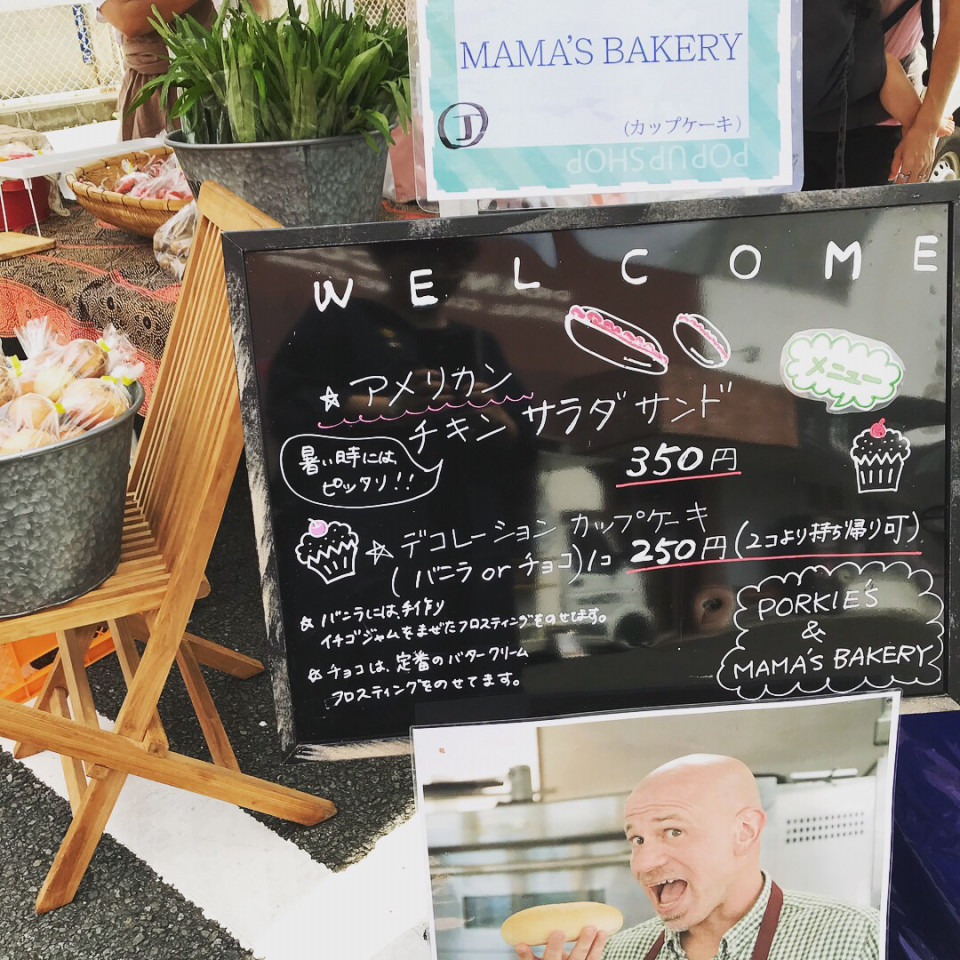 MAMA'S BAKERY
J
(カップケーキ)
POP UP SHOP
WELCOME
メニュー
☆アメリカン
チキンサラダサンド
350円
暑い時には、
ピッタリ!!
☆デコレーション カップケーキ
(バニラ or チョコ)/コ 250円(2コより持ち帰り可)
☆バニラには、手作り
イチゴジャムをまぜたフロスティングをのせてます。
☆チョコは、定番のバタークリーム
フロスティングをのせてます。
PORKIE'S
&
MAMA'S BAKERY